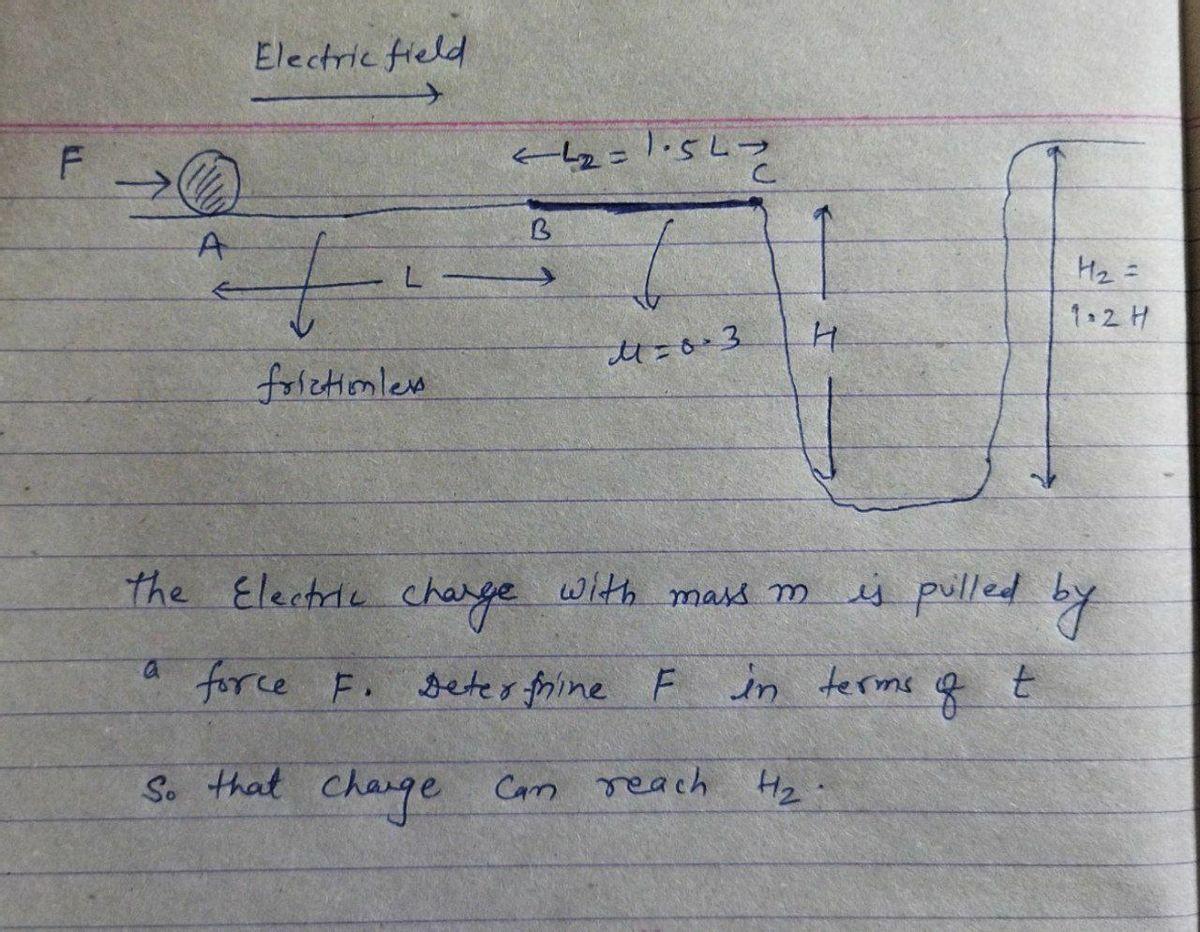 Electric field
F
← L2 = 1.5 L →
C
A
B
L
H2 =
1.2 H
μ = 0.3
H
frictionless
the Electric charge with mass m is pulled by
a force F. Determine F in terms of t
So that charge can reach H2.